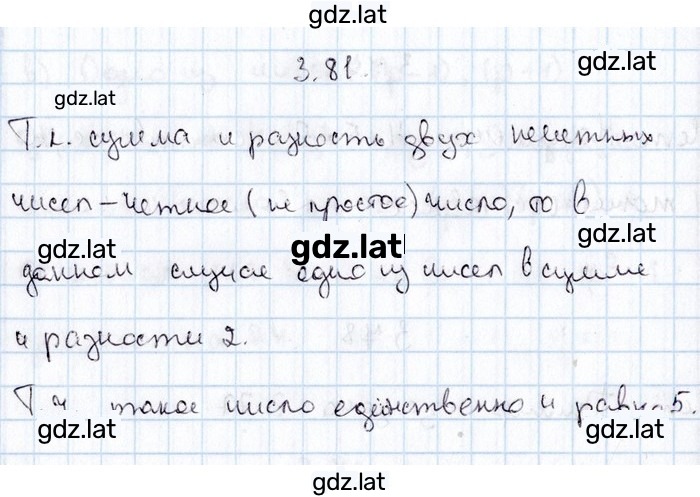 gdz.lat
3.81.
gdz.lat
gdz.lat
Т.к. сумма и разность двух нечетных
чисел – четное (не простое) число, то в
gdz.lat gdz.lat gdz.lat
данном случае одно из чисел в сумме
и разности 2.
Т.ч. такое число единственно и равно 5.
gdz.lat gdz.lat
gdz.lat